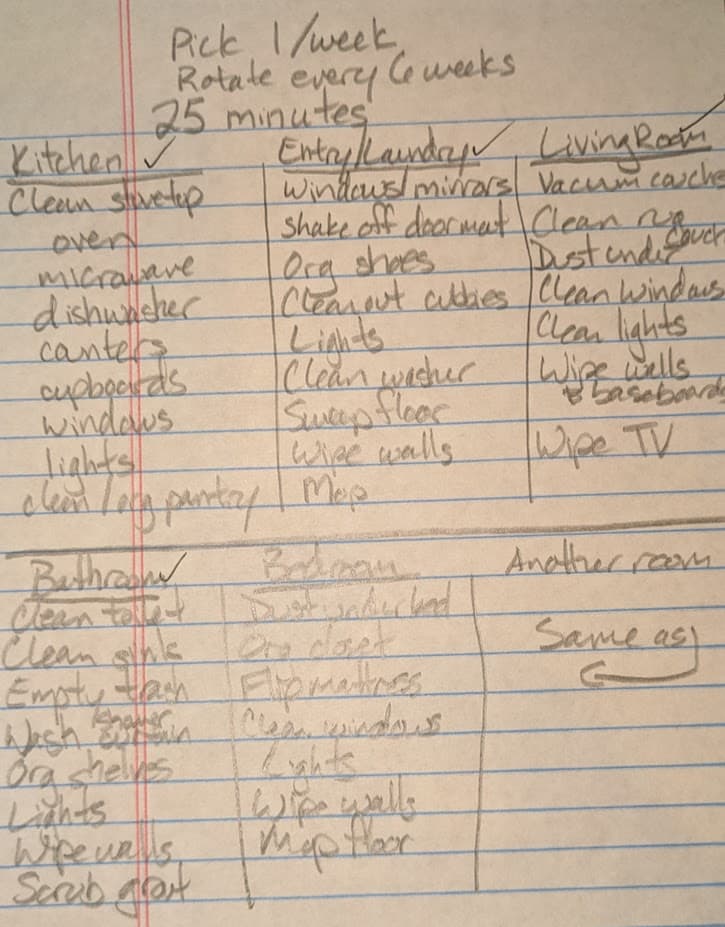 Pick 1/week
Rotate every 6 weeks
25 minutes
Kitchen ✓
Clean stovetop
oven
microwave
dishwasher
canters
cupboards
windows
lights
clean/org pantry
Entry/Laundry ✓
windows/mirrors
Shake off doormat
Org shoes
Clean out cubbies
Lights
Clean washer
Sweep floor
Wipe walls
Mop
Living Room ✓
Vacuum couche
Clean rug
Dust under couch
Clean windows
Clean lights
Wipe walls
& baseboards
Wipe TV
Bathroom ✓
Clean toilet
Clean sink
Empty trash
Wash shower curtain
Org shelves
Lights
Wipe walls
Scrub grout
Bedroom
Dust under bed
Org closet
Flip mattress
Clean windows
Lights
Wipe walls
Mop floor
Another room
Same as